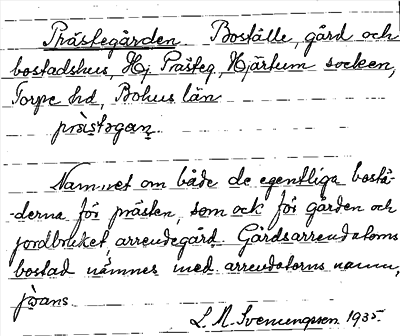 Prästegården. Boställe, gård och
bostadshus, Hj. Prästeg., Hjärtum socken,
Torpe hd, Bohus län
prästəgan
Namnet om både de egentliga bostä-
-derna för prästen, som ock för gården och
jordbruket, arrendegård. Gårdsarrendatorns
bostad nämnes med arrendatorns namn,
L. M. Svenungsson 1935.